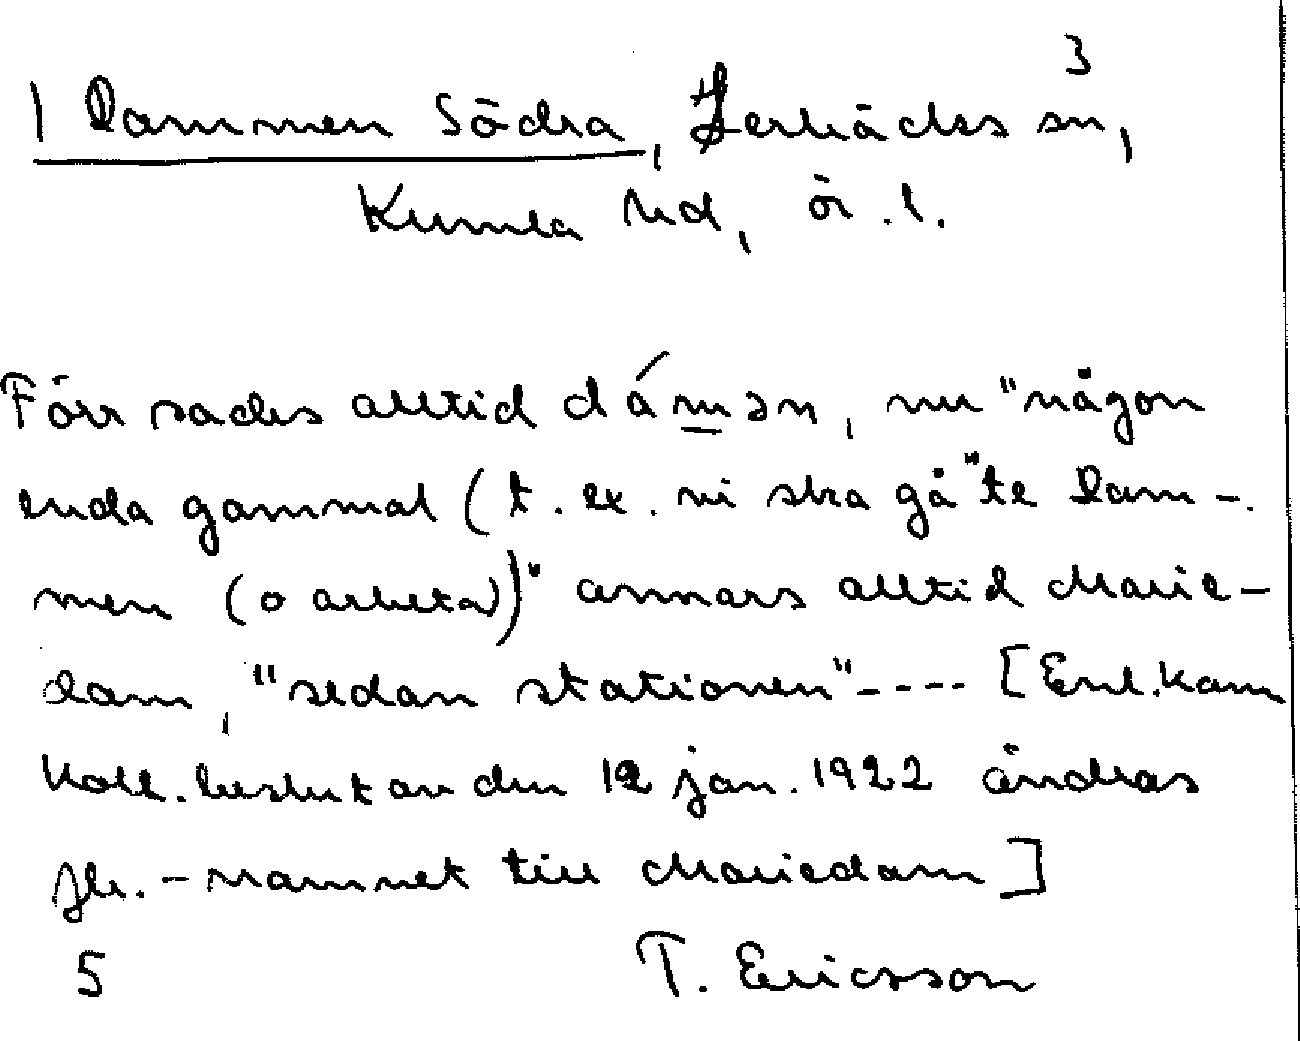 3
1 Dammen Södra, Lerbäcks sn,
Kumla hd, ör. l.
Förr sades alltid dámǝn, nu "någon
enda gammal (t. ex. ni ska gå "te Dam-
men (o arbeta))" annars alltid Marie-
dam, "sedan stationen"---- [Enl. Kam
Koll. beslut av den 12 jan. 1922 ändras
jbr. -namnet till Mariedam]
5 T. Ericsson